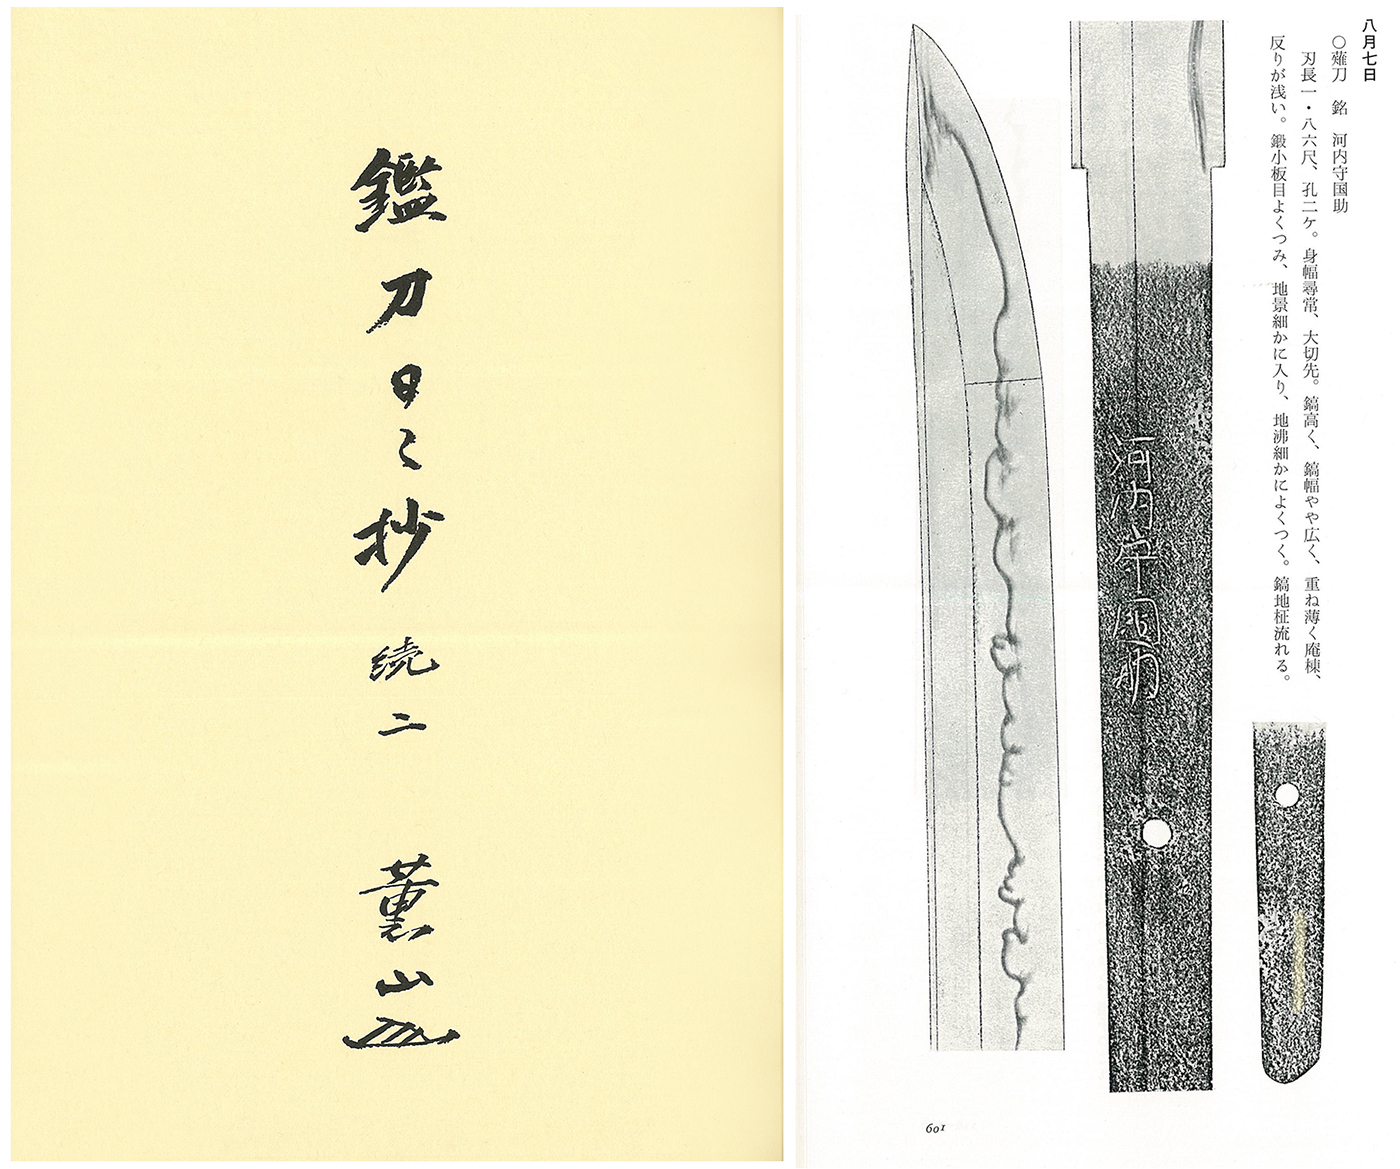 鑑刀日々抄 続二
薫山
八月七日
○薙刀 銘 河内守国助
刃長一・八六尺、孔二ケ。身幅尋常、大切先。鎬高く、鎬幅やや広く、重ね薄く庵棟、
反りが浅い。鍛小板目よくつみ、地景細かに入り、地沸細かによくつく。鎬地柾流れる。
河内守国助
601